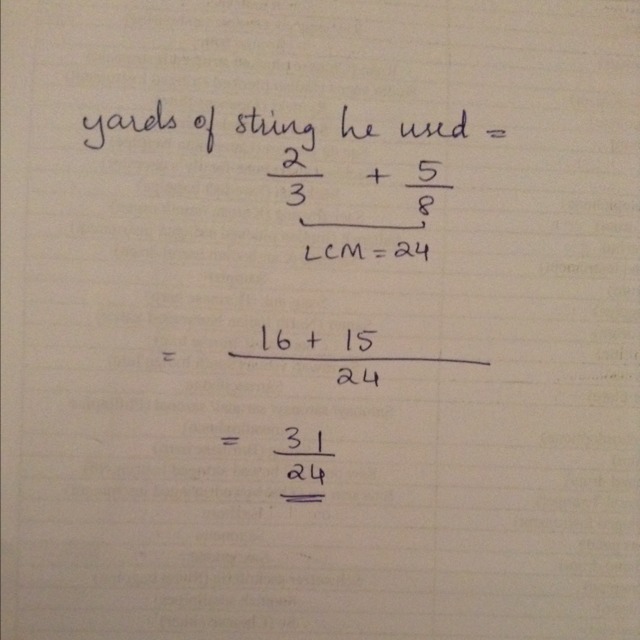 yards of string he used =
2/3 + 5/8
LCM = 24
= 16 + 15 / 24
= 31/24